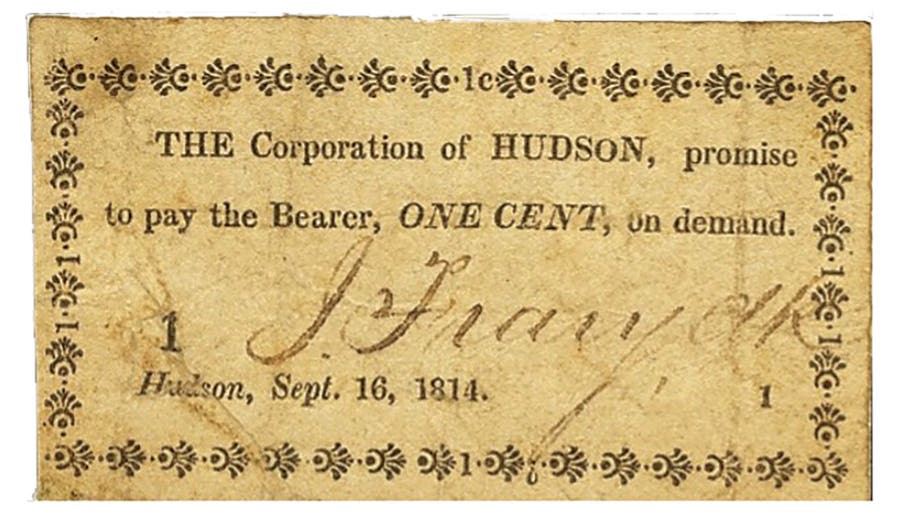 1c
THE Corporation of HUDSON, promise
to pay the Bearer, ONE CENT, on demand.
1 1
1 1
1
Hudson, Sept. 16, 1814.
1
1